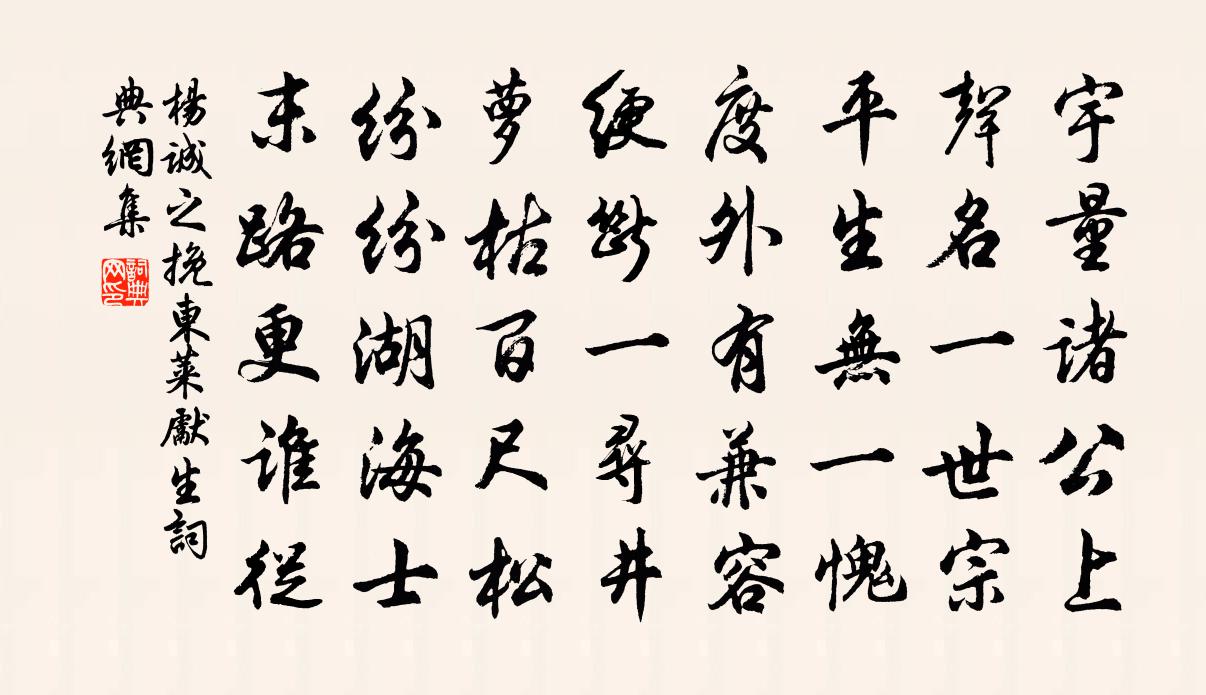 宇量諸公上
聲名一世宗
平生無一愧
度外有兼容
綆斷一尋井
萝枯百尺松
紛紛湖海士
末路更誰從
楊誠之挽東萊獻生詞
典網集
詞典
网印